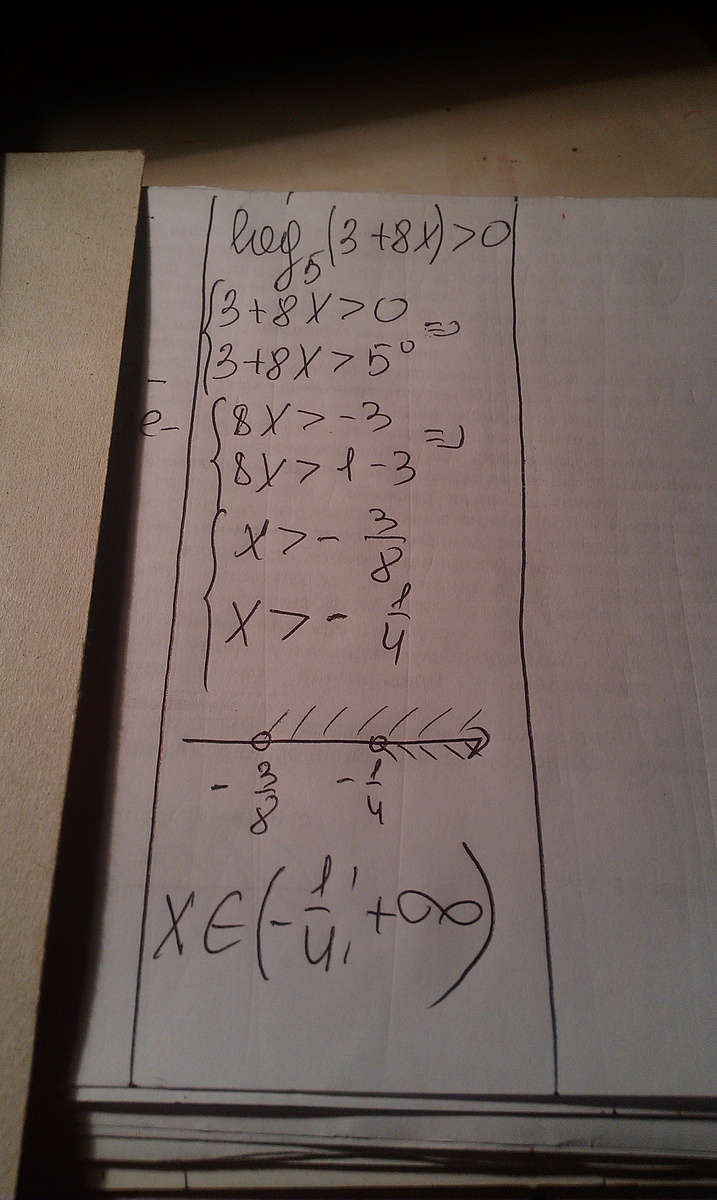 log₅(3+8x)>0
{3+8x>0
{3+8x>5⁰ =>
e-
{8x>-3
{8x>1-3 =>
{x>-3/8
{x>-1/4
-3/8 -1/4 x
x∈(-1/4; +∞)